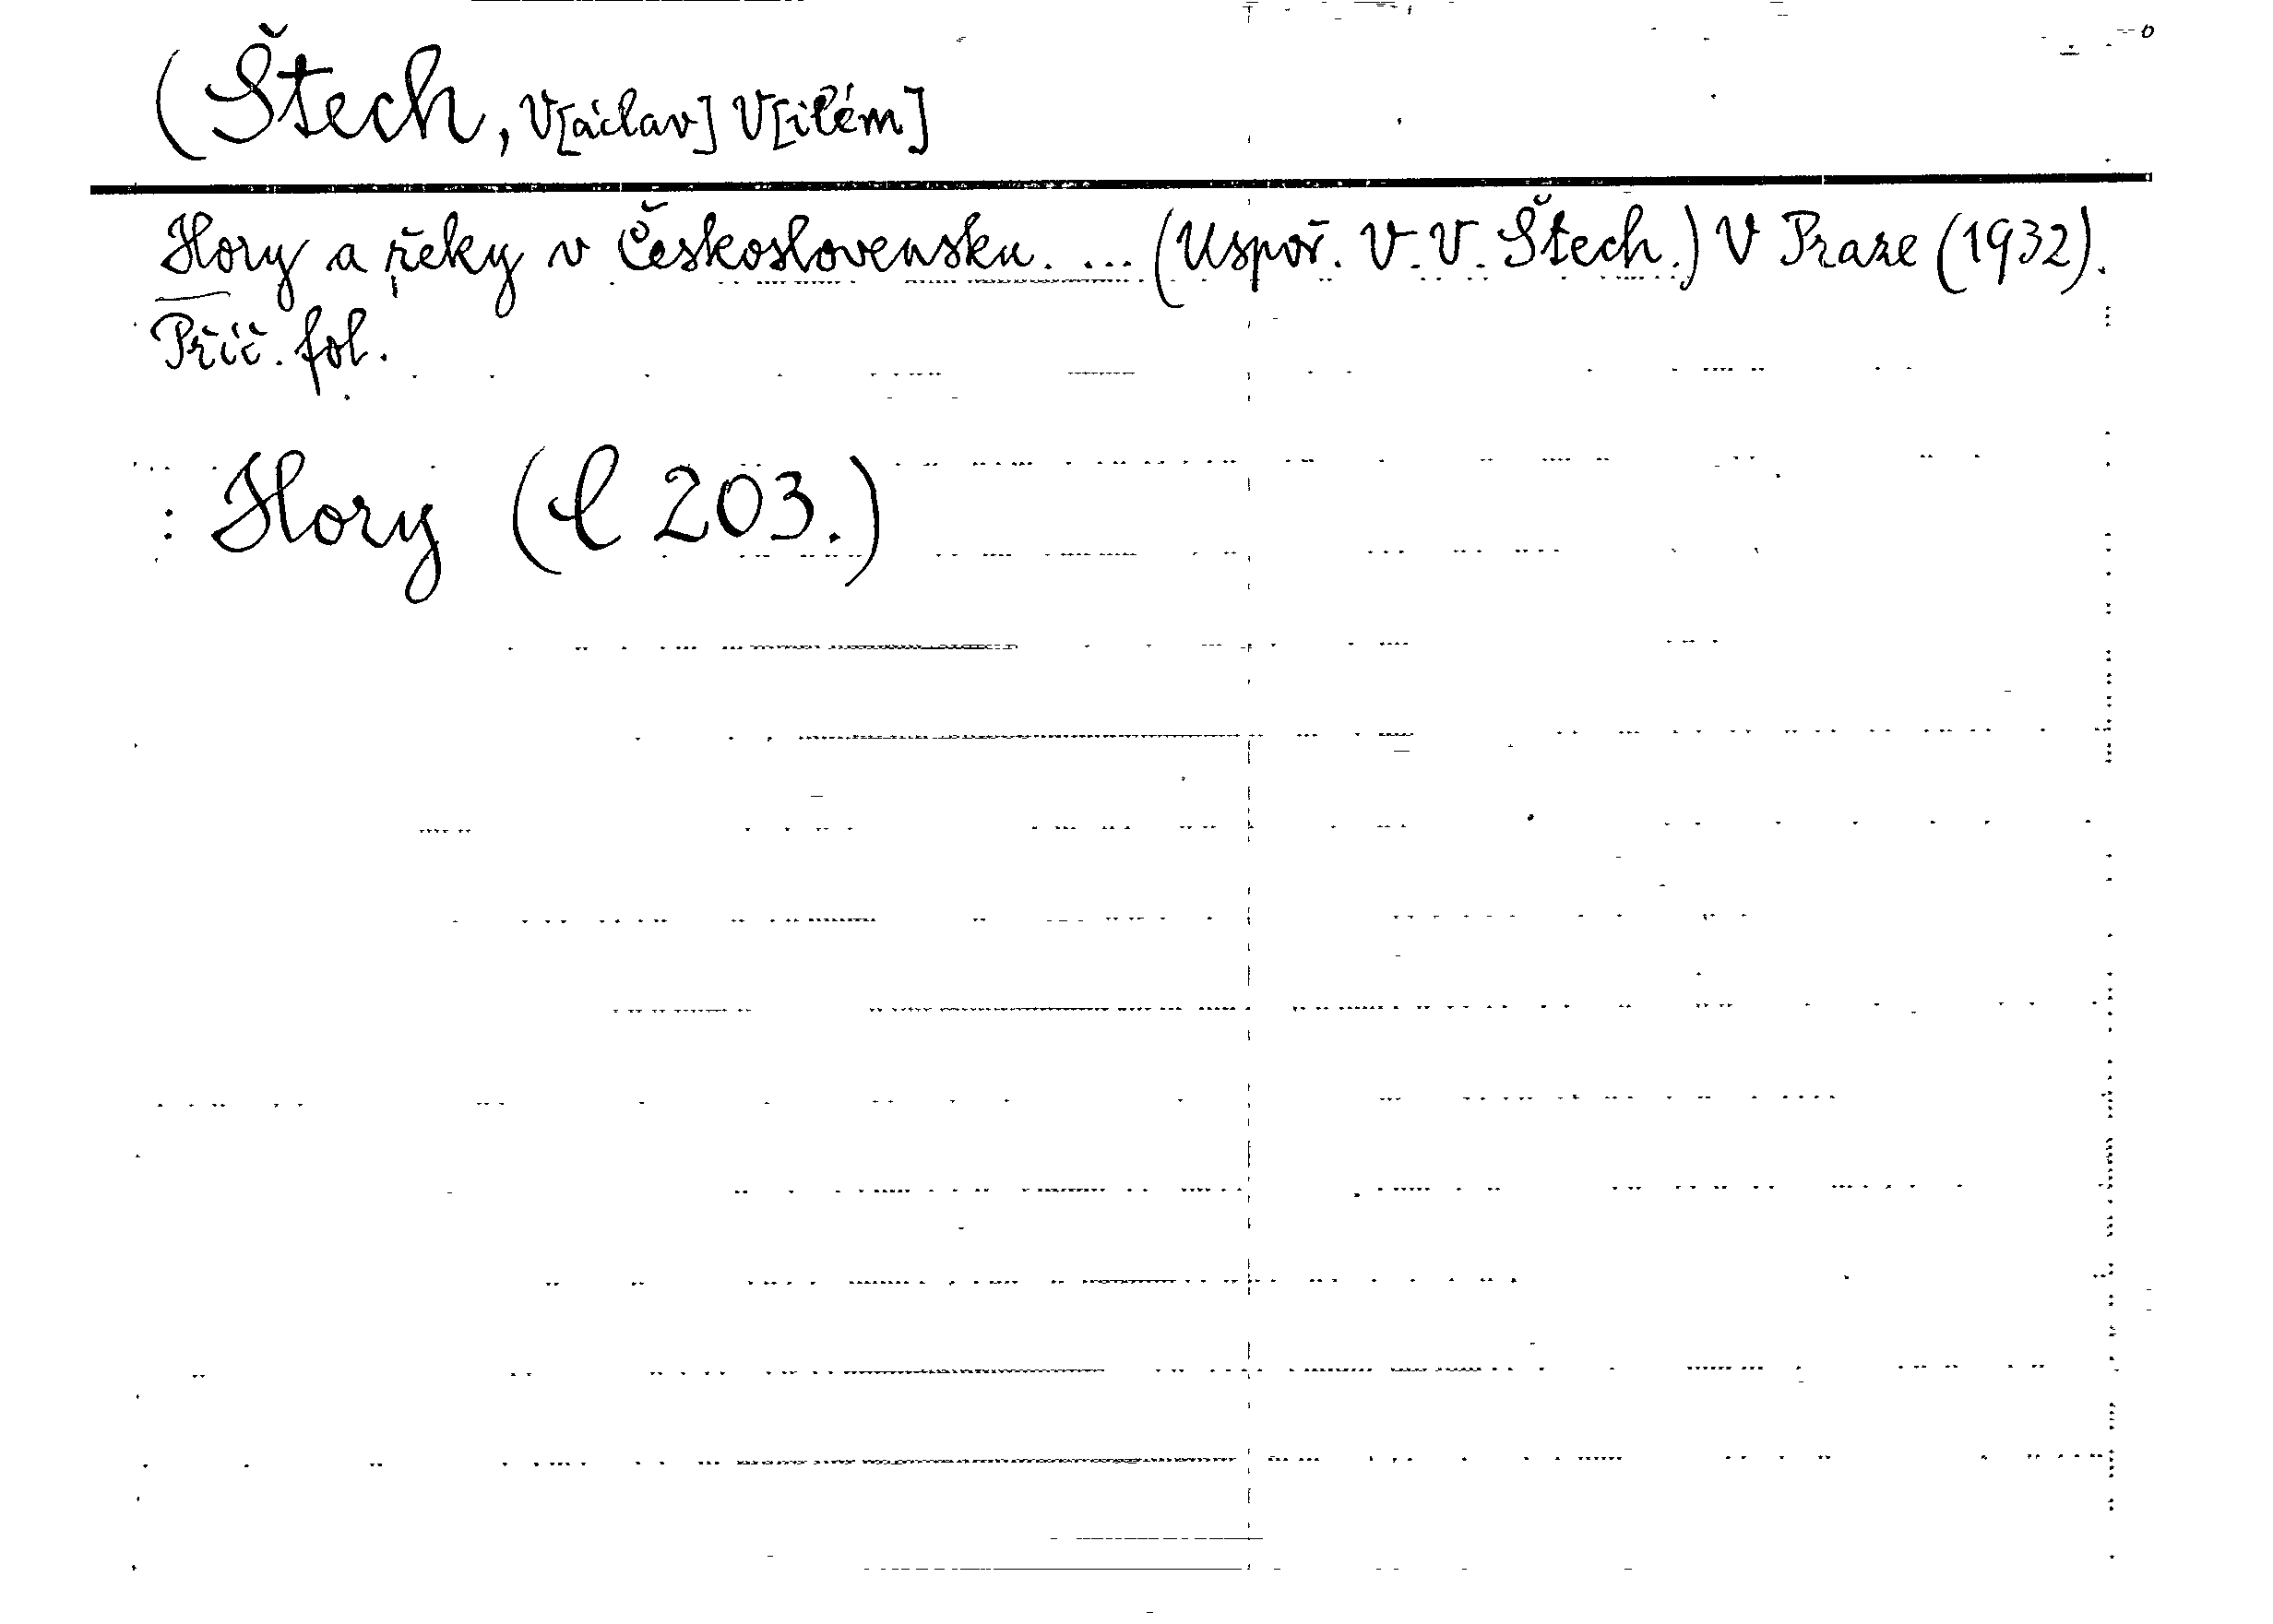 (Štech, V[áclav] V[ilém]
Hory a řeky v Československu. ... (Uspoř. V. V. Štech.) V Praze (1932).
Příč. fol.
: Hory (l 203.)